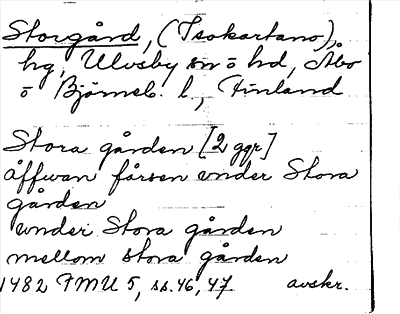 Storgård, (Isokartano),
hg, Ulvsby sn o hd, Åbo
o Björneb. l, Finland
Stora gården [2 ggr]
åffwan fårsen vnder Stora
gården
vnder Stora gården
mellom stora gården
1482 FMU 5, ss. 46, 47. avskr.